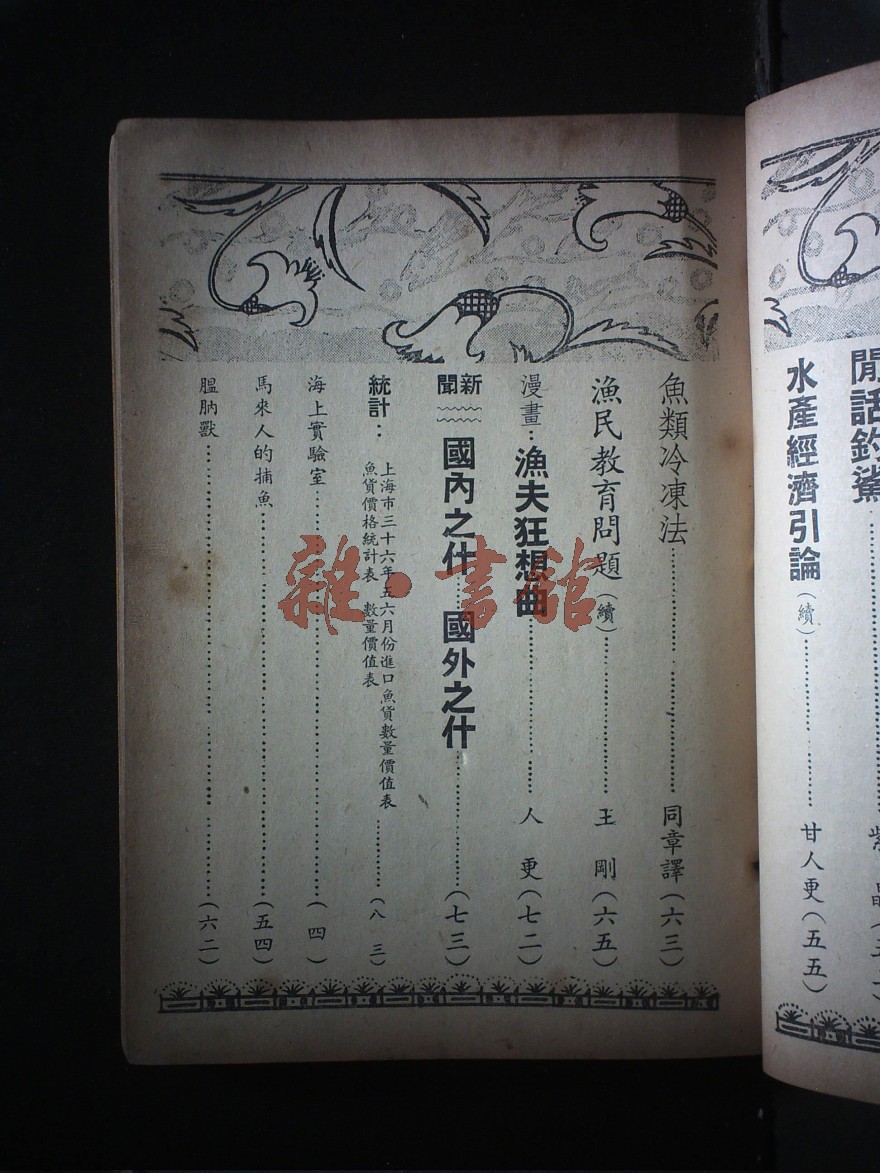 閒話釣鯊
水產經濟引論（續）⋯⋯甘人更（五五）
魚類冷凍法⋯⋯同章譯（六三）
漁民教育問題（續）⋯⋯王剛（六五）
漫畫：漁夫狂想曲⋯⋯人更（七二）
新聞 國內之什 國外之什⋯⋯（七三）
統計：上海市三十六年五六月份進口魚貨數量價值表⋯⋯（八三）
魚貨價格統計表 數量價值表
海上實驗室⋯⋯（四）
馬來人的捕魚⋯⋯（五四）
膃肭獸⋯⋯（六二）
雜·書館